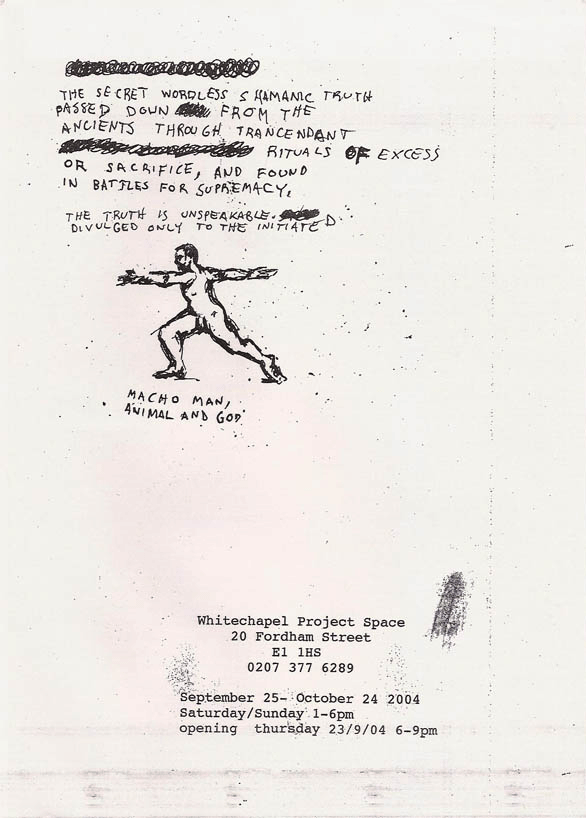 THE SECRET WORDLESS SHAMANIC TRUTH
PASSED DOWN FROM THE
ANCIENTS THROUGH TRANCENDANT
RITUALS OF EXCESS
OR SACRIFICE, AND FOUND
IN BATTLES FOR SUPREMACY.
THE TRUTH IS UNSPEAKABLE.
DIVULGED ONLY TO THE INITIATED
MACHO MAN,
ANIMAL AND GOD
Whitechapel Project Space
20 Fordham Street
E1 1HS
0207 377 6289
September 25- October 24 2004
Saturday/Sunday 1-6pm
opening thursday 23/9/04 6-9pm